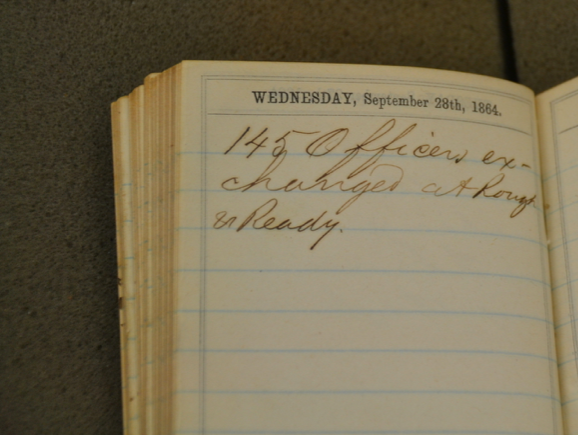 WEDNESDAY, September 28th, 1864.
145 Officers ex-
changed at Rough
& Ready.